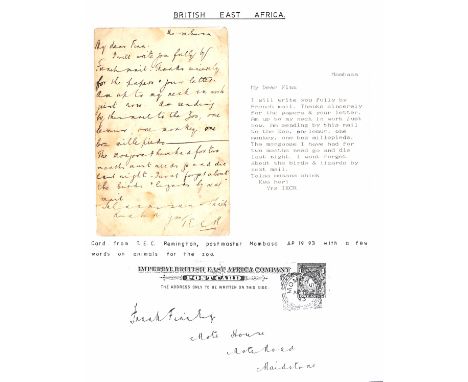 BRITISH EAST AFRICA.
My dear Finn.
I will write you fully by
French mail. Thanks sincerely
for the papers & your letter.
Am up to my neck in work
just now. Am sending
by this mail to the Zoo, one
lemur, one monkey, one
box millepeds.
The mongoose I had for two
months must needs go and die
last night. I wont forget about
the birds & lizards by next
mail.
Mombasa
My Dear Finn
I will write you fully by
French mail. Thanks sincerely
for the papers & your letter.
Am up to my neck in work just
now. Am sending by this mail
to the Zoo, one lemur, one
monkey, one box millepieds.
The mongoose I have had for
two months need go and die
last night. I wont forget
about the birds & lizards by
next mail.
Card from T.E.C. Remington, postmaster Mombasa AP 19 93 with a few
words on animals for the zoo.
IMPERIAL BRITISH EAST AFRICA COMPANY
POST CARD
THE ADDRESS ONLY TO BE WRITTEN ON THIS SIDE
Frank Finn Esq
Mote House
Mote Road
Maidstone